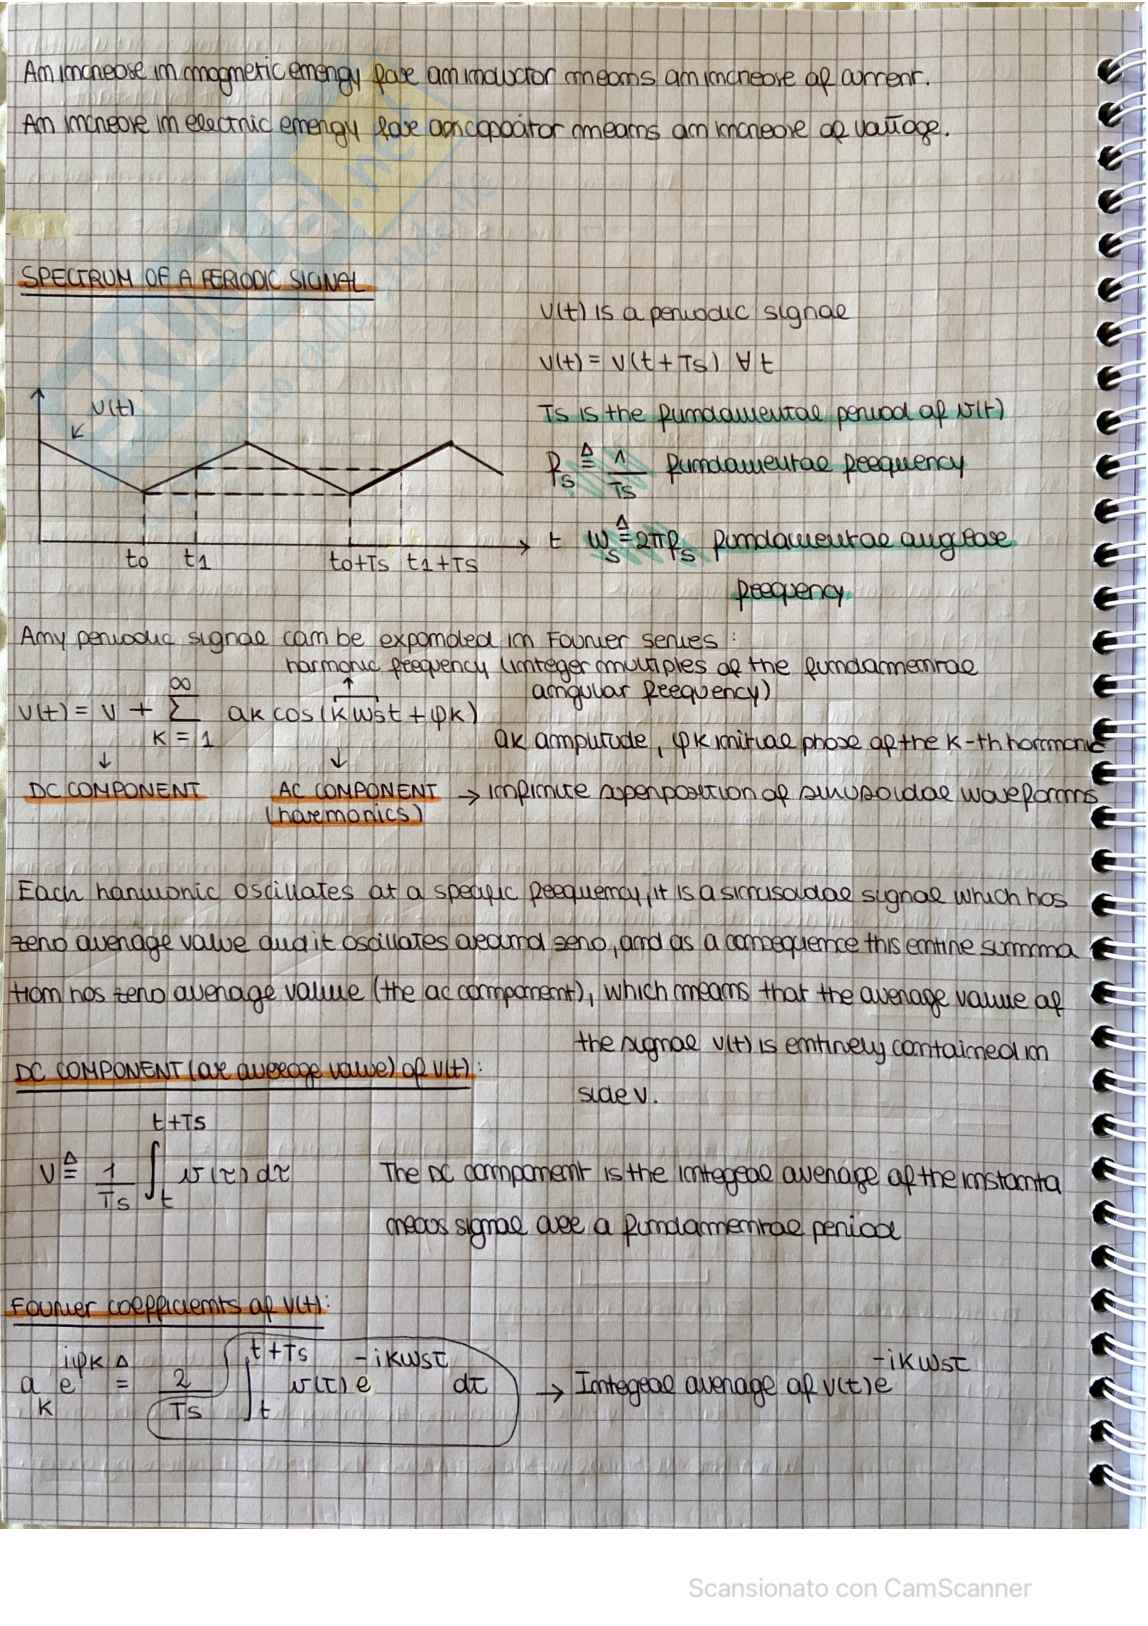 An increase in magnetic energy for an inductor means an increase of current.
An increase in electric energy for an capacitor means an increase of voltage.
SPECTRUM OF A PERIODIC SIGNAL
v(t) is a periodic signal
v(t) = v(t + Ts) ∀ t
Ts is the fundamental period of v(t)
v(t)
fs ≜ 1/Ts fundamental frequency
t
ωs ≜ 2πfs fundamental angular
frequency
t0 t1 t0+Ts t1+Ts
Any periodic signal can be expanded in Fourier series:
harmonic frequency (integer multiples of the fundamental
angular frequency)
v(t) = V + ∑ k = 1 ∞ ak cos(kωst + φk)
ak amplitude, φk initial phase of the k-th harmonic
DC COMPONENT
AC COMPONENT → infinite superposition of sinusoidal waveforms
(harmonics)
Each harmonic oscillates at a specific frequency, it is a sinusoidal signal which has
zero average value and it oscillates around zero, and as a consequence this entire summa
tion has zero average value (the ac component), which means that the average value of
the signal v(t) is entirely contained in
side V.
DC COMPONENT (or average value) of v(t):
V ≜ 1/Ts ∫ t t+Ts v(τ) dτ
The DC component is the integral average of the instanta
neous signal over a fundamental period
Fourier coefficients of v(t):
ak e^iφk ≜ 2/Ts ∫ t t+Ts v(τ) e^-ikωsτ dτ → Integral average of v(t)e^-ikωsτ
SKUOLA.net
Scansionato con CamScanner